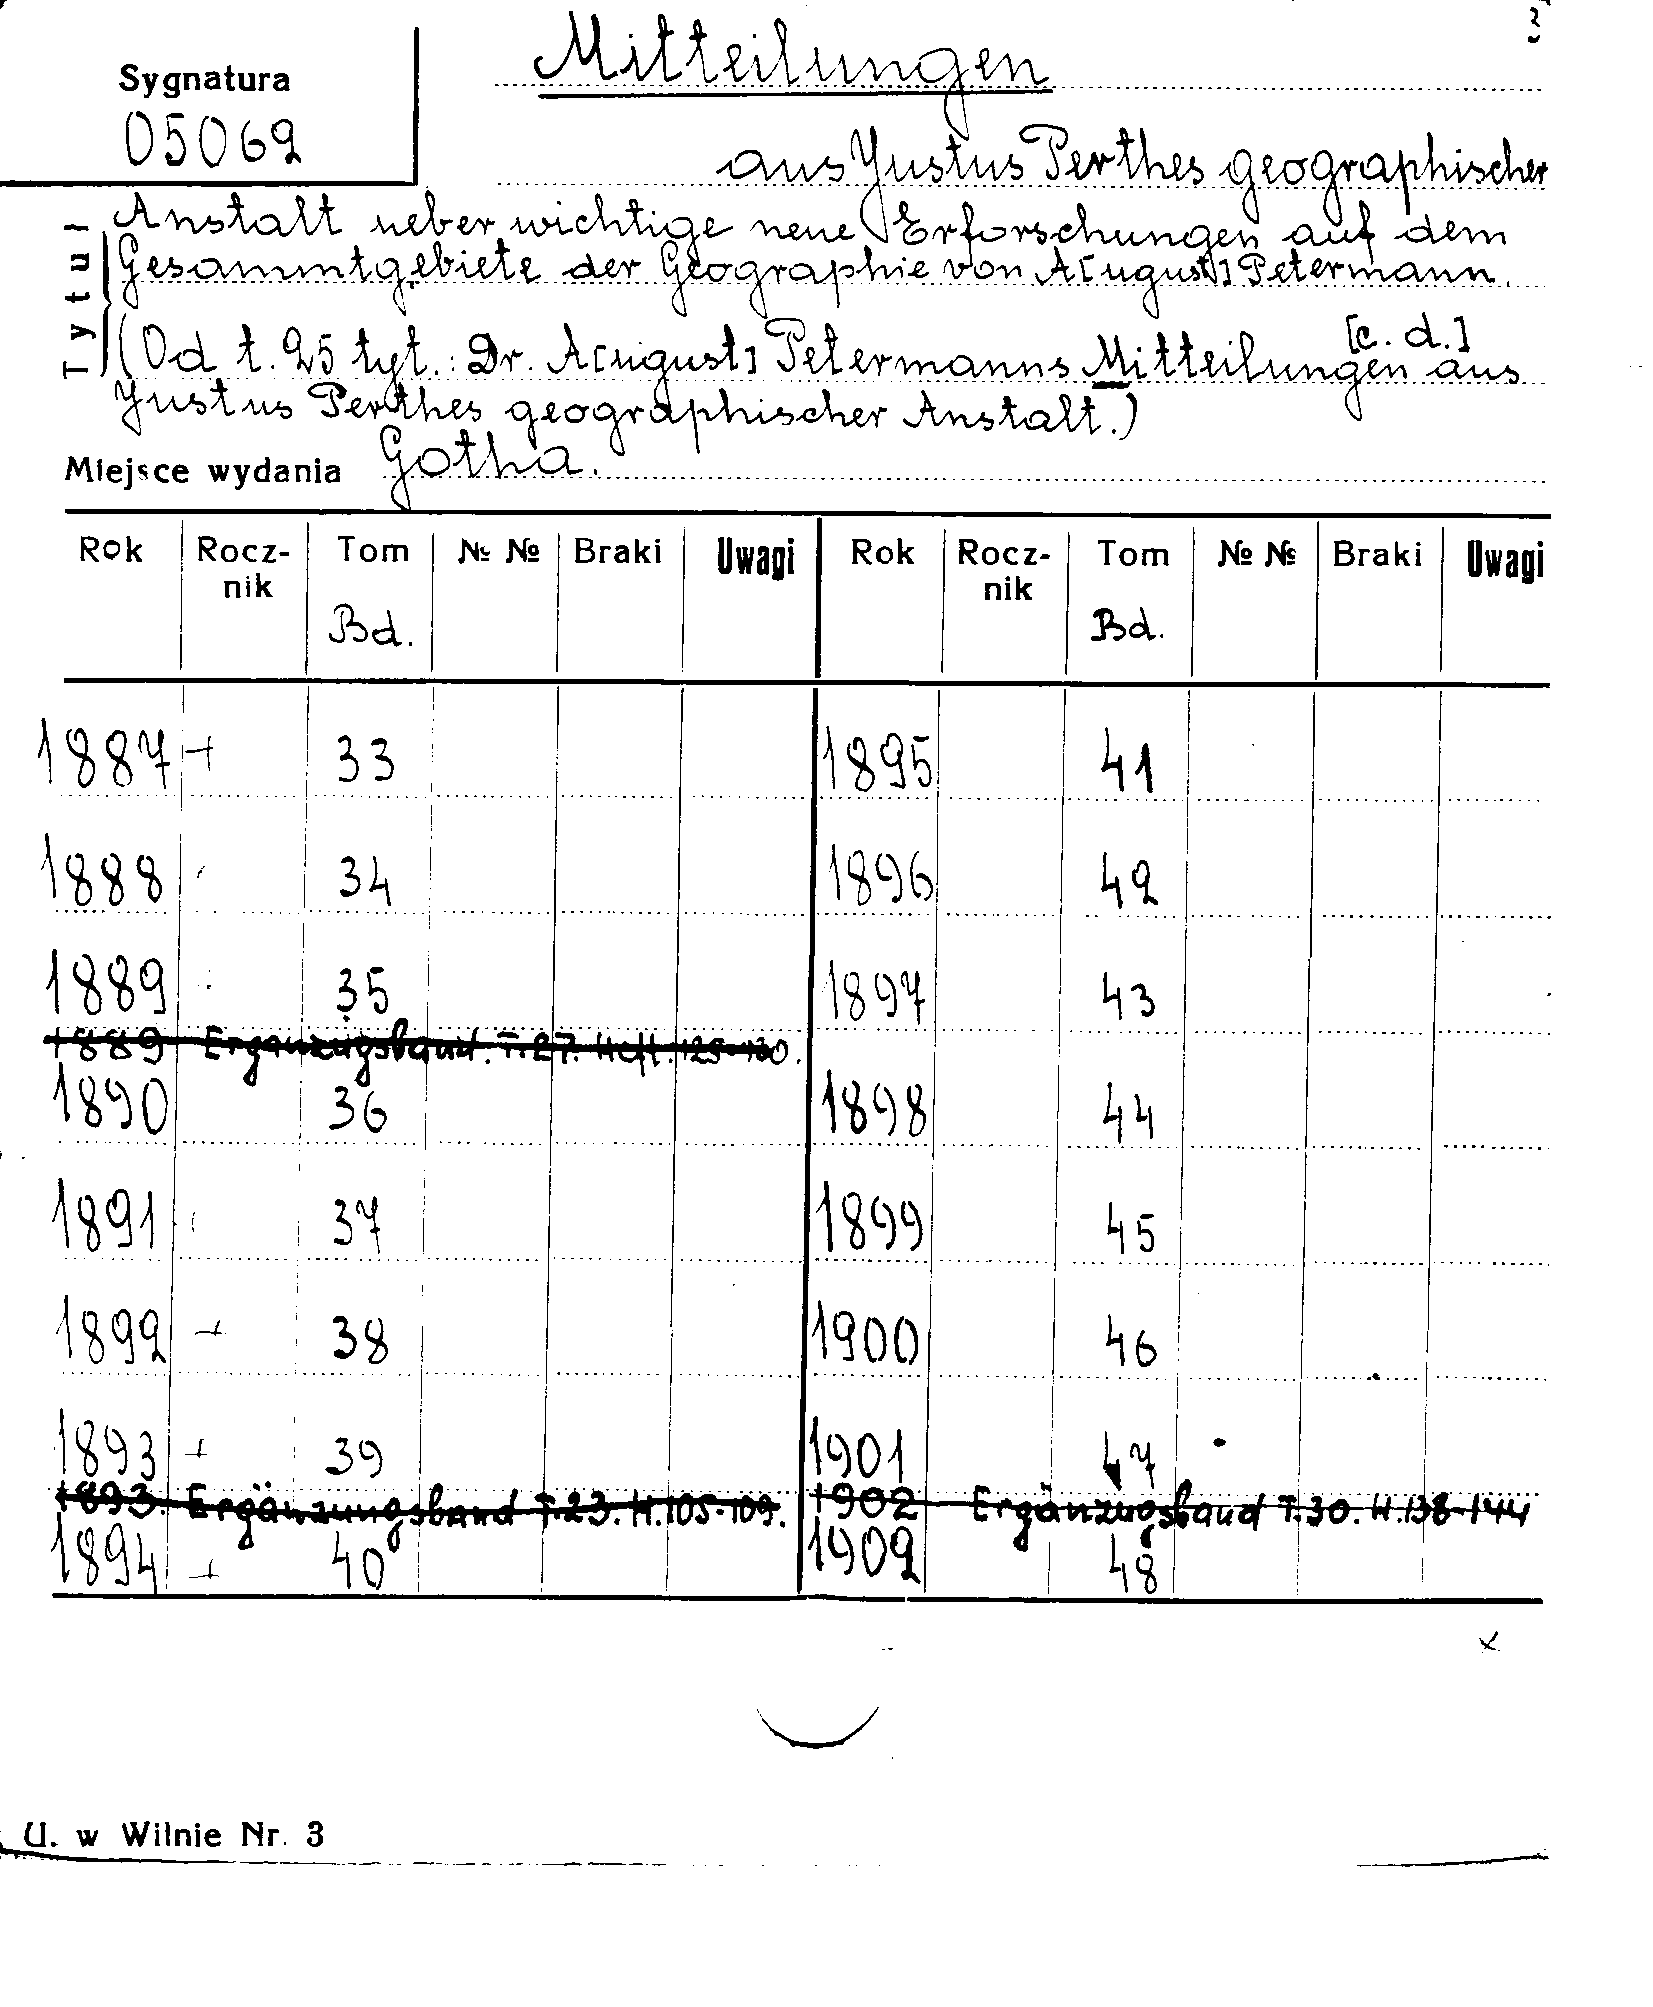 3
Sygnatura
05062
Mitteilungen
aus Justus Perthes geographischer
Tytuł
Anstalt ueber wichtige neue Erforschungen auf dem
Gesammtgebiete der Geographie von A[ugust] Petermann.
[c. d.]
(Od t. 25 tyt.: Dr. A[ugust] Petermanns Mitteilungen aus
Justus Perthes geographischer Anstalt.)
Miejsce wydania Gotha.
Rok Rocz-nik Tom № № Braki Uwagi Rok Rocz-nik Tom № № Braki Uwagi
Bd. Bd.
1887 + 33 1895 41
1888 34 1896 42
1889 35 1897 43
1889 Erganzugsband. T.27. Heft. 125-130.
1890 36 1898 44
1891 37 1899 45
1892 + 38 1900 46
1893 + 39 1901 47
1893. Ergänzungsband T.23. H.105-109. 1902 Ergänzugsband T.30. H.138-144
1894 + 40 1902 48
x
U. w Wilnie Nr. 3